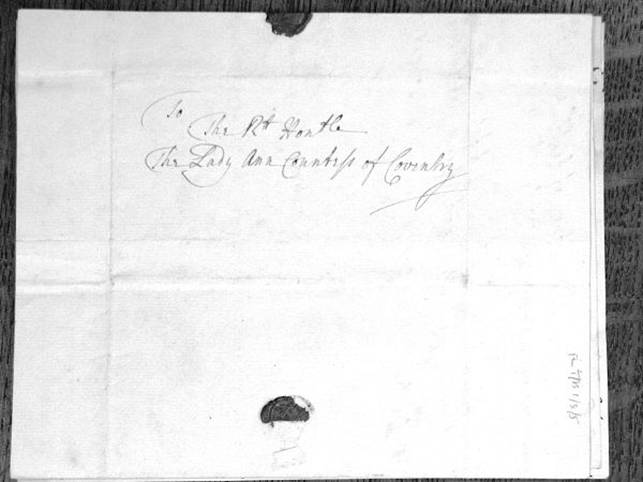 To
The Rt Honble
The Lady Ann Countess of Coventry